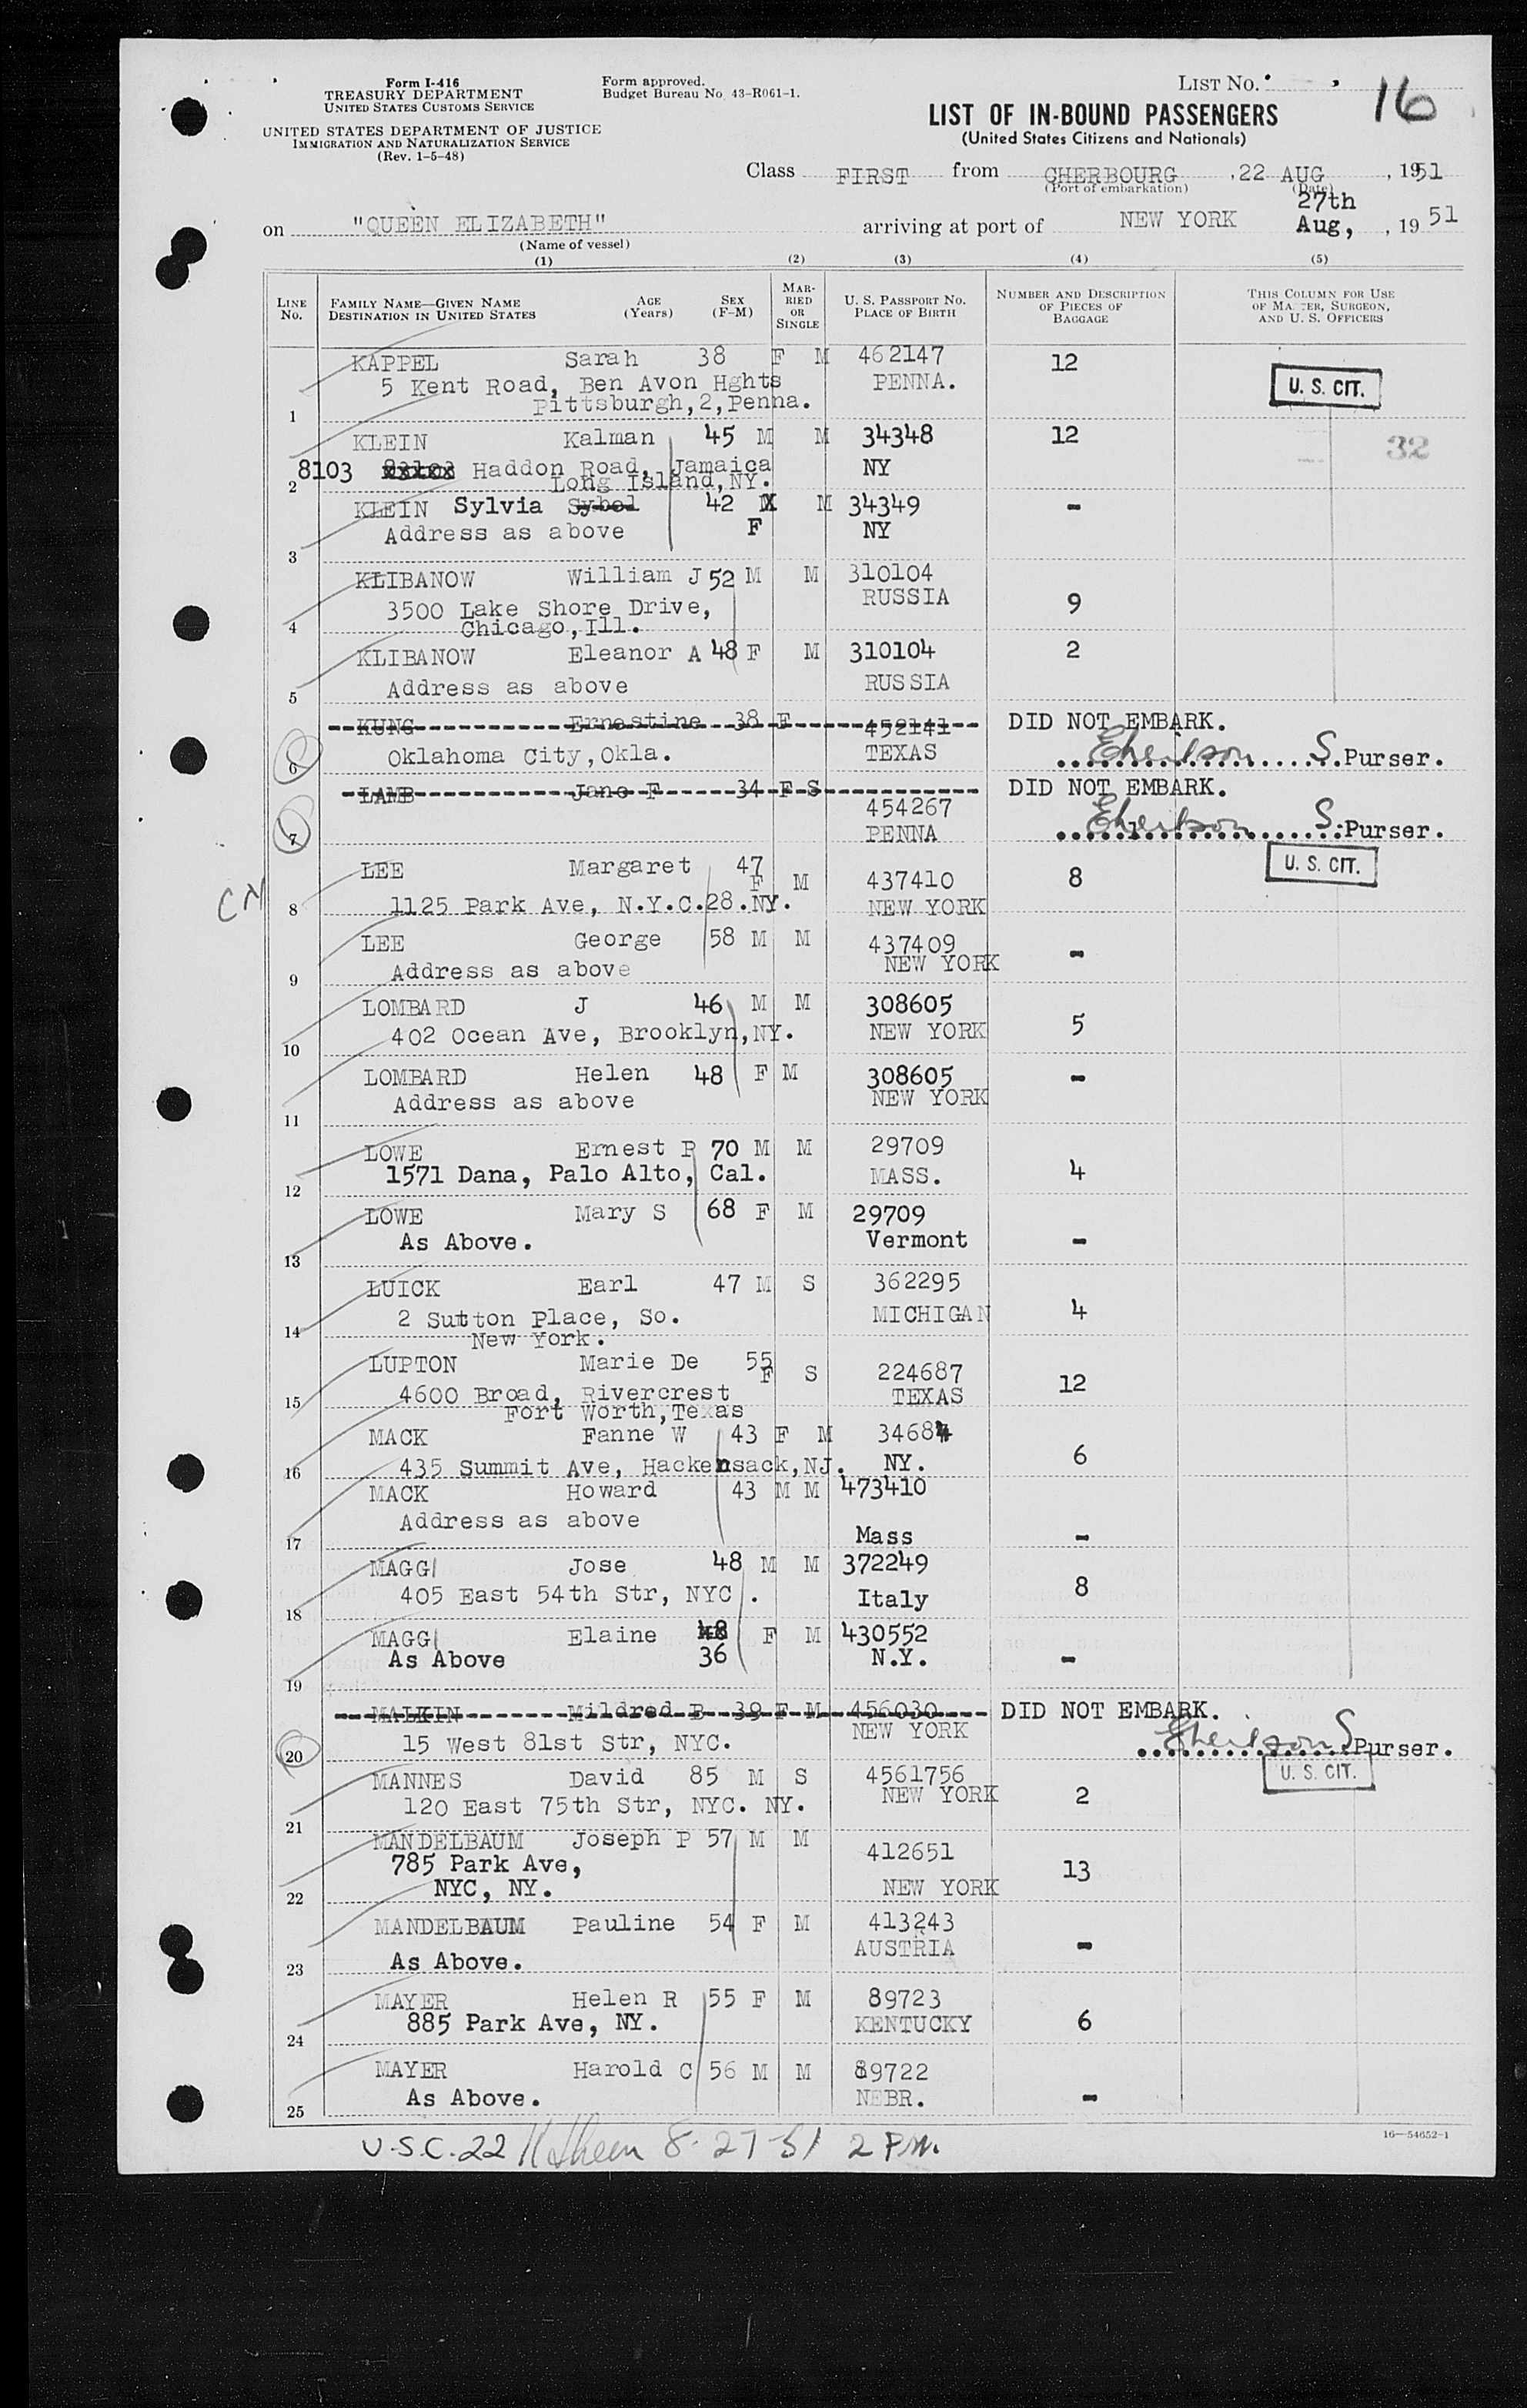 Form I-416
TREASURY DEPARTMENT
UNITED STATES CUSTOMS SERVICE
UNITED STATES DEPARTMENT OF JUSTICE
IMMIGRATION AND NATURALIZATION SERVICE
(Rev. 1-5-48)
Form approved.
Budget Bureau No. 43-R061-1.
LIST No.
16
LIST OF IN-BOUND PASSENGERS
(United States Citizens and Nationals)
Class FIRST from CHERBOURG , 22 AUG , 1951
(Port of embarkation) (Date)
on "QUEEN ELIZABETH" arriving at port of NEW YORK 27th Aug, , 19 51
(Name of vessel)
(1) (2) (3) (4) (5)
LINE No. FAMILY NAME—GIVEN NAME DESTINATION IN UNITED STATES AGE (Years) SEX (F-M) MARRIED OR SINGLE U. S. PASSPORT No. PLACE OF BIRTH NUMBER AND DESCRIPTION OF PIECES OF BAGGAGE THIS COLUMN FOR USE OF MASTER, SURGEON, AND U. S. OFFICERS
KAPPEL Sarah 38 F M 462147 12
5 Kent Road, Ben Avon Hghts PENNA. U. S. CIT.
1 Pittsburgh,2,Penna.
KLEIN Kalman 45 M M 34348 12 32
8103 Haddon Road, Jamaica NY
2 Long Island,NY.
KLEIN Sylvia Sybol 42 X M 34349 -
Address as above F NY
3
KLIBANOW William J 52 M M 310104
3500 Lake Shore Drive, RUSSIA 9
4 Chicago,Ill.
KLIBANOW Eleanor A 48 F M 310104 2
5 Address as above RUSSIA
KUNG Ernestine 38 F 452141 DID NOT EMBARK.
6 Oklahoma City,Okla. TEXAS S.Purser.
LAMB Jane F 34 F S DID NOT EMBARK.
454267
7 PENNA S.Purser.
LEE Margaret 47 F M 437410 8 U. S. CIT.
8 1125 Park Ave, N.Y.C.28.NY. NEW YORK
LEE George 58 M M 437409 -
9 Address as above NEW YORK
LOMBARD J 46 M M 308605
10 402 Ocean Ave, Brooklyn,NY. NEW YORK 5
LOMBARD Helen 48 F M 308605 -
11 Address as above NEW YORK
LOWE Ernest P 70 M M 29709
12 1571 Dana, Palo Alto, Cal. MASS. 4
LOWE Mary S 68 F M 29709
13 As Above. Vermont -
LUICK Earl 47 M S 362295
2 Sutton Place, So. MICHIGAN 4
14 New York.
LUPTON Marie De 55 F S 224687 12
15 4600 Broad, Rivercrest TEXAS
Fort Worth,Texas
MACK Fanne W 43 F M 34684
16 435 Summit Ave, Hackensack,NJ. NY. 6
MACK Howard 43 M M 473410
Address as above
17 Mass -
MAGGI Jose 48 M M 372249
18 405 East 54th Str, NYC. Italy 8
MAGGI Elaine 48 F M 430552
19 As Above 36 N.Y. -
MALKIN Mildred B 39 F M 456030 DID NOT EMBARK.
20 15 West 81st Str, NYC. NEW YORK S Purser.
MANNES David 85 M S 4561756 U. S. CIT.
21 120 East 75th Str, NYC. NY. NEW YORK 2
MANDELBAUM Joseph P 57 M M 412651
785 Park Ave, 13
22 NYC, NY. NEW YORK
MANDELBAUM Pauline 54 F M 413243
AUSTRIA -
23 As Above.
MAYER Helen R 55 F M 89723
24 885 Park Ave, NY. KENTUCKY 6
MAYER Harold C 56 M M 89722
25 As Above. NEBR. -
U.S.C. 22 8-27-51 2 P.M.
16—54652-1